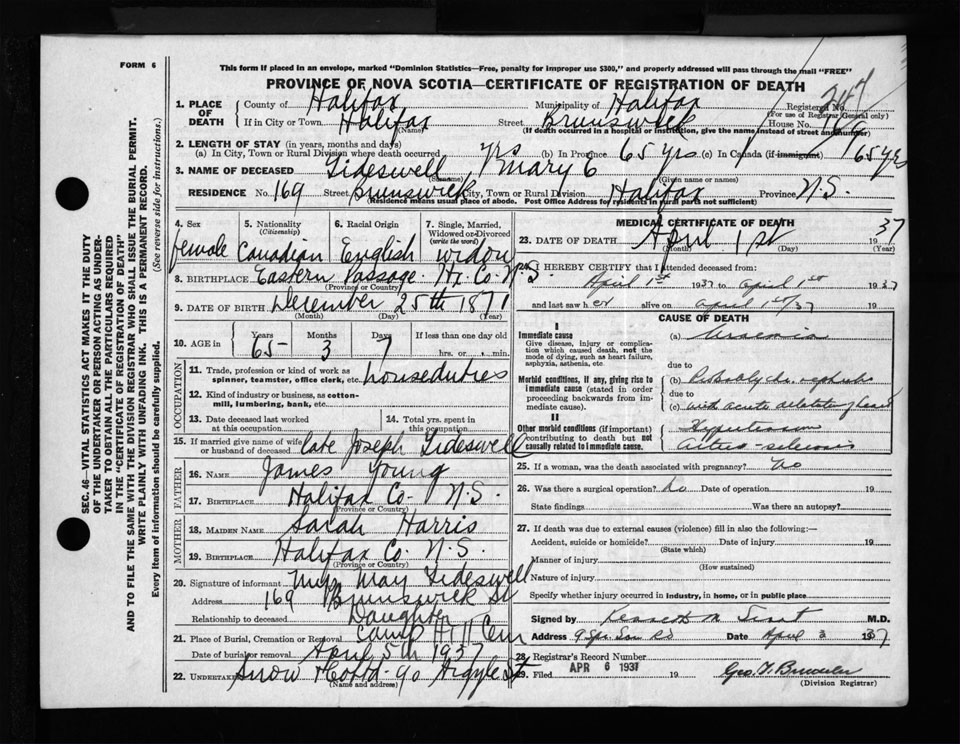 FORM 6
This form if placed in an envelope, marked "Dominion Statistics—Free, penalty for improper use $300," and properly addressed will pass through the mail "FREE"
PROVINCE OF NOVA SCOTIA—CERTIFICATE OF REGISTRATION OF DEATH
1. PLACE OF DEATH
County of Halifax Municipality of Halifax Registered No. 247
(For use of Registrar General only)
If in City or Town Halifax Street Brunswick House No. 169
(Name) (If death occurred in a hospital or institution, give the name instead of street and number)
2. LENGTH OF STAY (in years, months and days)
(a) In City, Town or Rural Division where death occurred yrs (b) In Province 65 yrs (c) In Canada (if immigrant) 65 yrs
3. NAME OF DECEASED Tideswell Mary E
(Surname) (Given name or names)
RESIDENCE No. 169 Street Brunswick City, Town or Rural Division Halifax Province N.S.
(Residence means usual place of abode. Post Office Address for residents in rural parts not sufficient)
4. Sex female
5. Nationality (Citizenship) Canadian
6. Racial Origin English
7. Single, Married, Widowed or Divorced (write the word) widow
8. BIRTHPLACE Eastern Passage Hx. Co. N.S.
(Province or Country)
9. DATE OF BIRTH December 25th 1871
(Month) (Day) (Year)
10. AGE in Years 65 Months 3 Days 7 If less than one day old
hrs. or min.
OCCUPATION
11. Trade, profession or kind of work as spinner, teamster, office clerk, etc. houseduties
12. Kind of industry or business, as cotton-mill, lumbering, bank, etc.
13. Date deceased last worked at this occupation
14. Total yrs. spent in this occupation
15. If married give name of wife or husband of deceased late Joseph Tideswell
FATHER
16. NAME James Young
17. BIRTHPLACE Halifax Co. N.S.
(Province or Country)
MOTHER
18. MAIDEN NAME Sarah Harris
19. BIRTHPLACE Halifax Co. N.S.
(Province or Country)
20. Signature of informant May Tideswell
Address 169 Brunswick St
Relationship to deceased Daughter
21. Place of Burial, Cremation or Removal Camp Hill Cem
Date of burial or removal April 5th 1937
22. UNDERTAKER Snow 90 Argyle St
(Name and address)
MEDICAL CERTIFICATE OF DEATH
23. DATE OF DEATH April 1st 1937
(Month) (Day) (Year)
24. I HEREBY CERTIFY that I attended deceased from:
April 1st 1937 to April 1st 1937
and last saw her alive on April 1st/37
CAUSE OF DEATH
I
Immediate cause
Give disease, injury or complication which caused death, not the mode of dying, such as heart failure, asphyxia, asthenia, etc.
(a) Uraemia
due to
Morbid conditions, if any, giving rise to immediate cause (stated in order proceeding backwards from immediate cause).
(b) Probably chr. nephritis
due to
(c) with acute dilatation of heart
II
Other morbid conditions (if important) contributing to death but not causally related to immediate cause.
Hypertension
Arterio-sclerosis
25. If a woman, was the death associated with pregnancy? No
26. Was there a surgical operation? No Date of operation 19
State findings Was there an autopsy?
27. If death was due to external causes (violence) fill in also the following:—
Accident, suicide or homicide? Date of injury 19
(State which)
Manner of injury
(How sustained)
Nature of injury
Specify whether injury occurred in industry, in home, or in public place
Signed by Kenneth M. M.D.
Address Date April 3 1937
28. Registrar's Record Number
29. Filed APR 6 1937 19
(Division Registrar)
SEC. 46—VITAL STATISTICS ACT MAKES IT THE DUTY
OF THE UNDERTAKER OR PERSON ACTING AS UNDER-
TAKER TO OBTAIN ALL THE PARTICULARS REQUIRED
IN THE "CERTIFICATE OF REGISTRATION OF DEATH"
AND TO FILE THE SAME WITH THE DIVISION REGISTRAR WHO SHALL ISSUE THE BURIAL PERMIT.
WRITE PLAINLY WITH UNFADING INK. THIS IS A PERMANENT RECORD.
Every item of information should be carefully supplied. (See reverse side for instructions.)